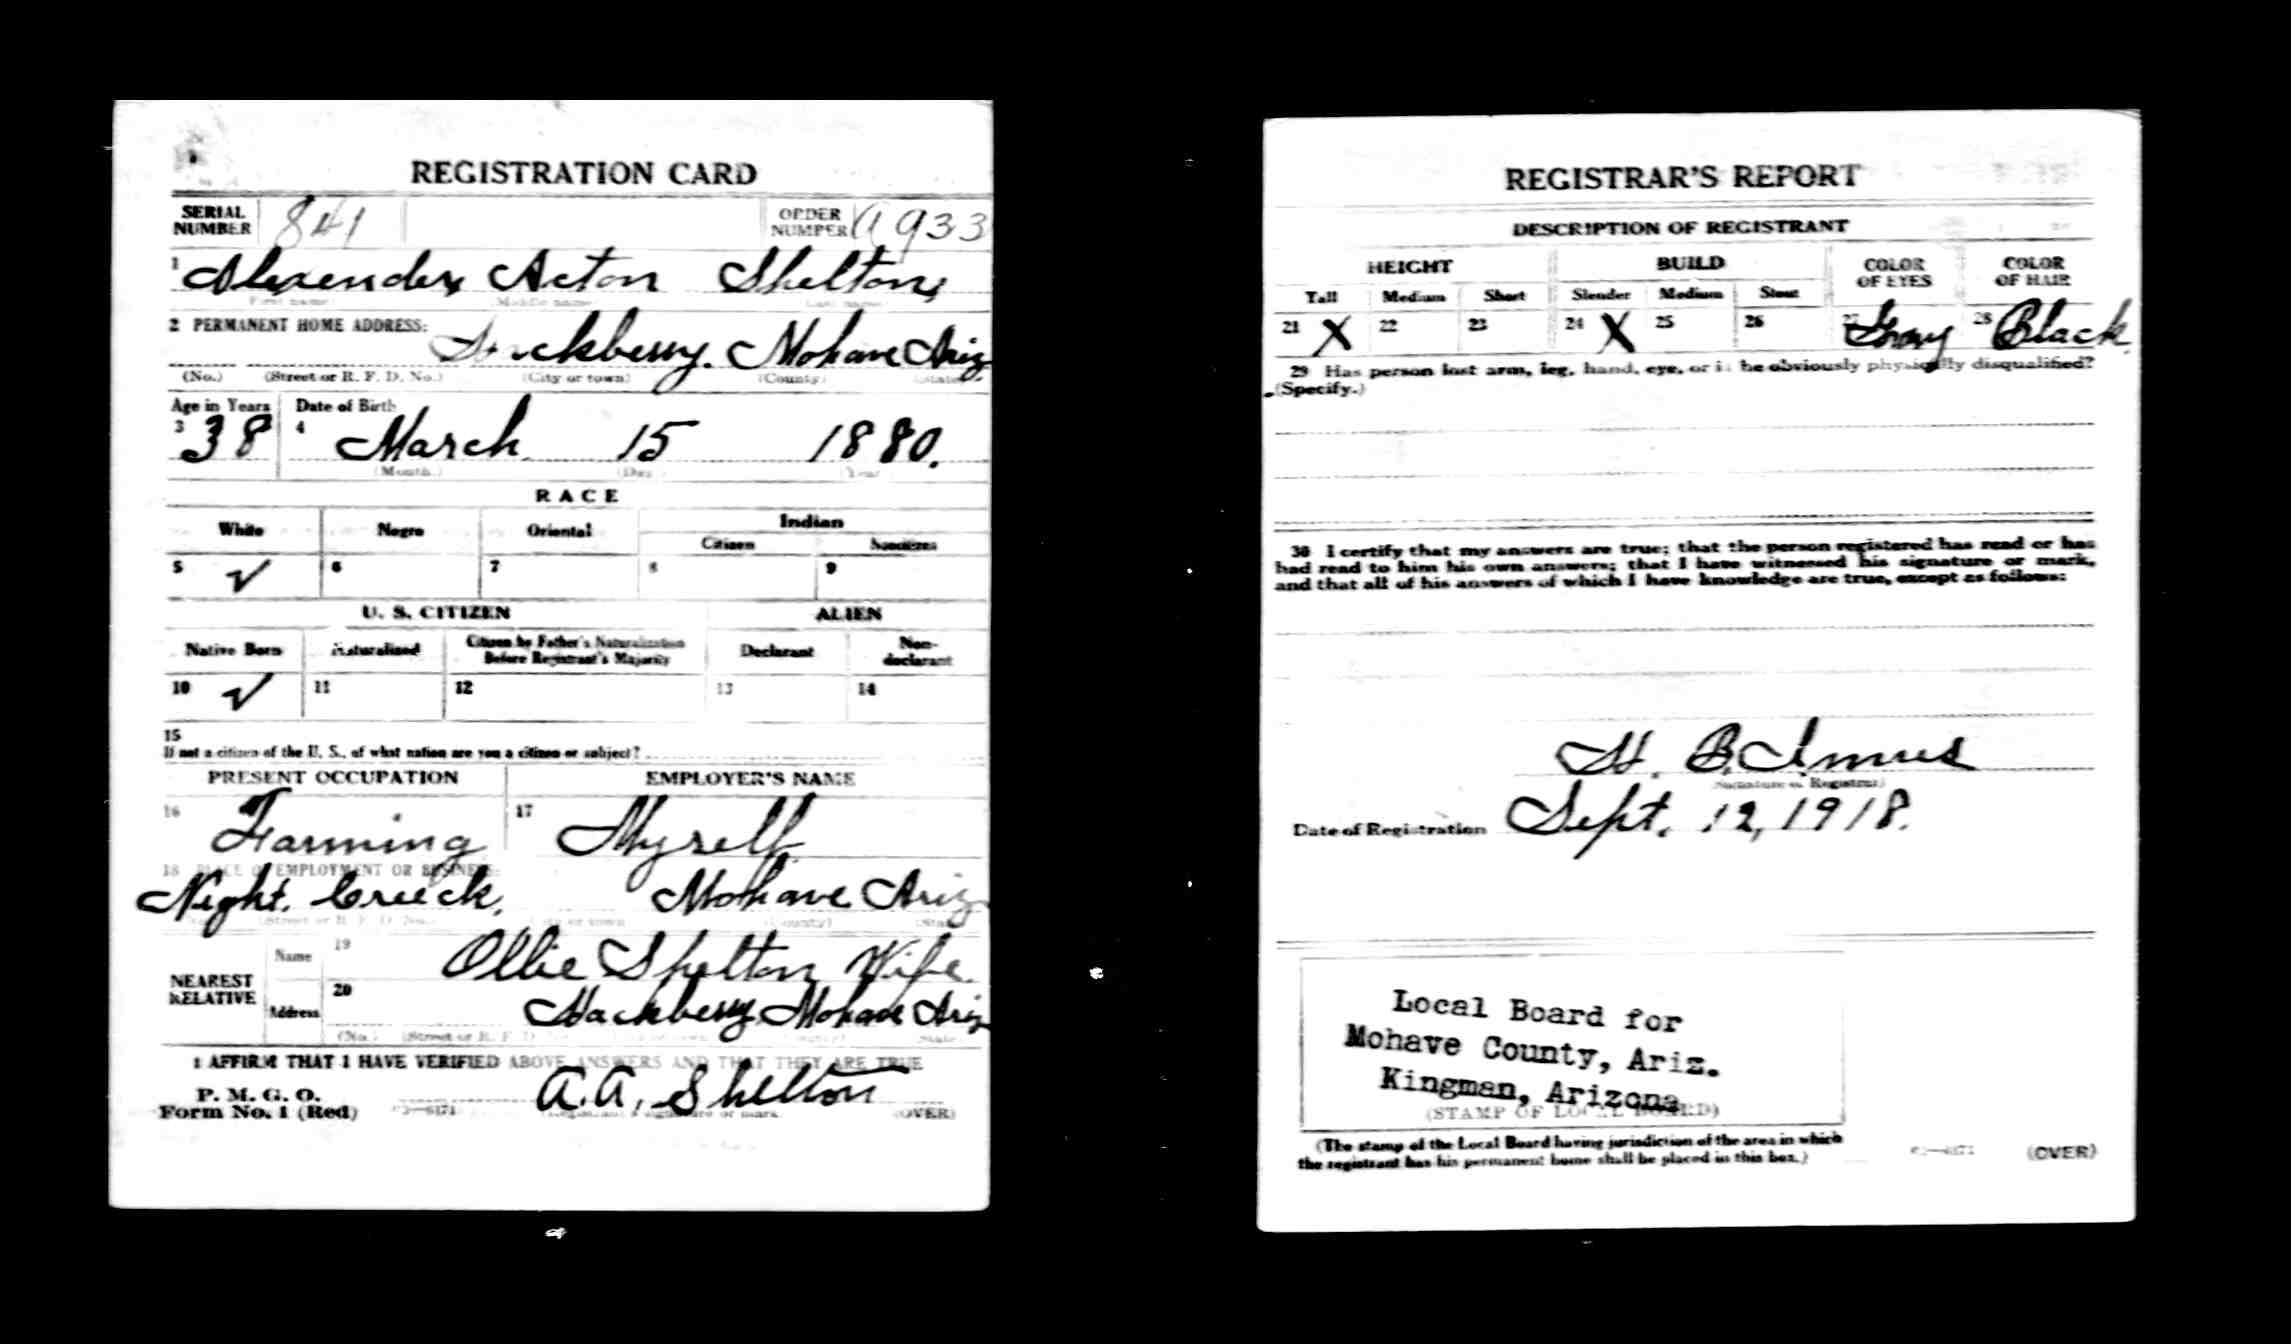 REGISTRATION CARD
SERIAL NUMBER 841 ORDER NUMBER A 933
1 Alexender Acton Shelton
First name Middle name Last name
2 PERMANENT HOME ADDRESS:
Hackberry. Mohave Ariz
(No.) (Street or R. F. D. No.) (City or town) (County) (State)
Age in Years Date of Birth
3 38 4 March 15 1880.
(Month.) (Day) Year
RACE
White Negro Oriental Indian
Citizen Noncitizen
5 ✓ 6 7 8 9
U. S. CITIZEN ALIEN
Native Born Naturalized Citizen by Father's Naturalization Before Registrant's Majority Declarant Non-declarant
10 ✓ 11 12 13 14
15
If not a citizen of the U. S., of what nation are you a citizen or subject?
PRESENT OCCUPATION EMPLOYER'S NAME
16 Farming 17 Myself
18 PLACE OF EMPLOYMENT OR BUSINESS:
Night. Creeck. Mohave Ariz
(Street or R. F. D. No.) (City or town) (County) (State)
NEAREST RELATIVE
Name 19 Ollie Shelton Wife.
Address 20 Hackberry Mohave Ariz
(No.) (Street or R. F. D. (County) (State)
I AFFIRM THAT I HAVE VERIFIED ABOVE ANSWERS AND THAT THEY ARE TRUE
P. M. G. O.
Form No. 1 (Red) A.A. Shelton (OVER)
(Registrant's signature or mark
REGISTRAR'S REPORT
DESCRIPTION OF REGISTRANT
HEIGHT BUILD COLOR OF EYES COLOR OF HAIR
Tall Medium Short Slender Medium Stout
21 X 22 23 24 X 25 26 27 Gray 28 Black
29 Has person lost arm, leg, hand, eye, or is he obviously physically disqualified?
(Specify.)
30 I certify that my answers are true; that the person registered has read or has
had read to him his own answers; that I have witnessed his signature or mark,
and that all of his answers of which I have knowledge are true, except as follows:
H. B. Imus
(Signature of Registrar)
Date of Registration Sept. 12, 1918.
Local Board for
Mohave County, Ariz.
Kingman, Arizona
(STAMP OF LOCAL BOARD)
(The stamp of the Local Board having jurisdiction of the area in which
the registrant has his permanent home shall be placed in this box.)
(OVER)